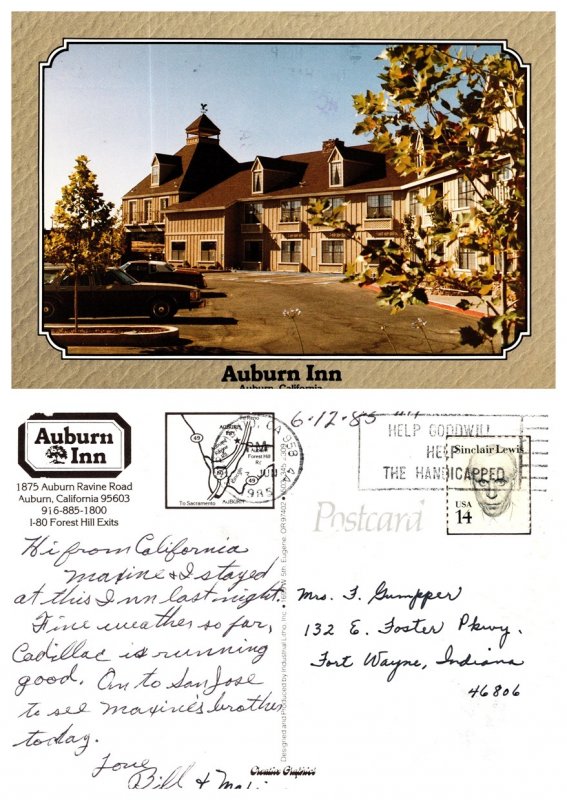 Auburn Inn
Auburn, California
Auburn
Inn
1875 Auburn Ravine Road
Auburn, California 95603
916-885-1800
I-80 Forest Hill Exits
To Reno
49
AUBURN INN
Forest Hill
80
49
To Sacramento
AUBURN
CA 958
PM
JUN
1985
6-12-85
HELP GOODWILL
HELP
THE HANDICAPPED
Sinclair Lewis
USA
14
Postcard
Hi from California
Maxine & I stayed
at this Inn last night.
Fine weather so far,
Cadillac is running
good. On to San Jose
to see Maxine's brother
today.
Love
Bill &
Mrs. F. Gumpper
132 E. Foster Pkwy.
Fort Wayne, Indiana
46806
Designed and Produced by Industrial Litho, Inc. • W. 5th, Eugene, OR 97402
Creative Graphics